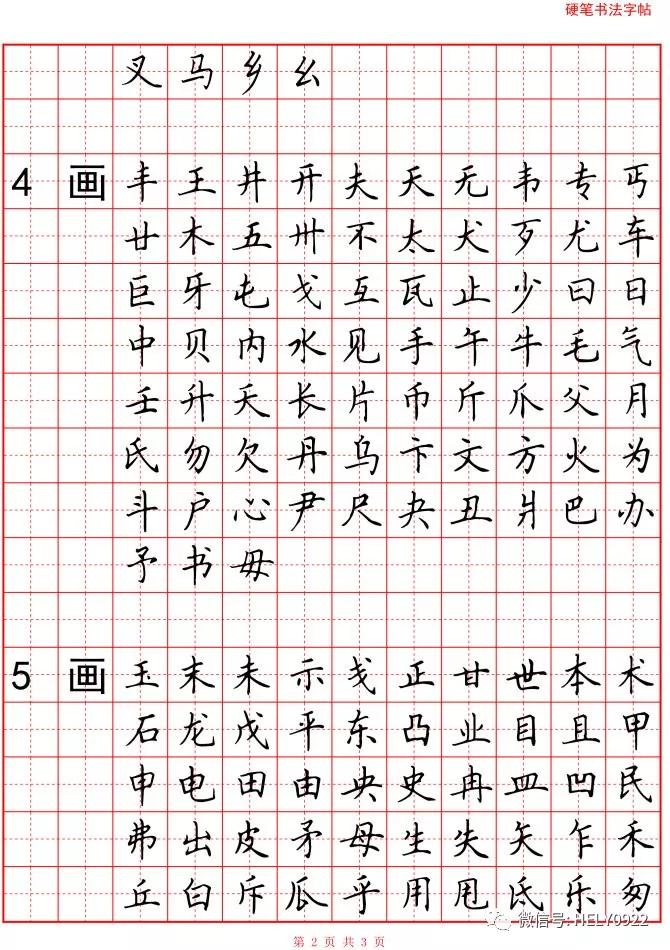 硬笔书法字帖
叉马乡幺
4画丰王井开夫天无韦专丐
廿木五卅不太犬歹尤车
巨牙屯戈互瓦止少曰日
中贝内水见手午牛毛气
壬升夭长片币斤爪父月
氏勿欠丹乌卞文方火为
斗户心尹尺夬丑爿巴办
予书毋
5画玉末未示戋正甘世本术
石龙戊平东凸业目且甲
申电田由央史冉皿凹民
弗出皮矛母生失矢乍禾
丘白斥瓜乎用甩氐乐匆
微信号: HELY0922
第 2 页 共 3 页